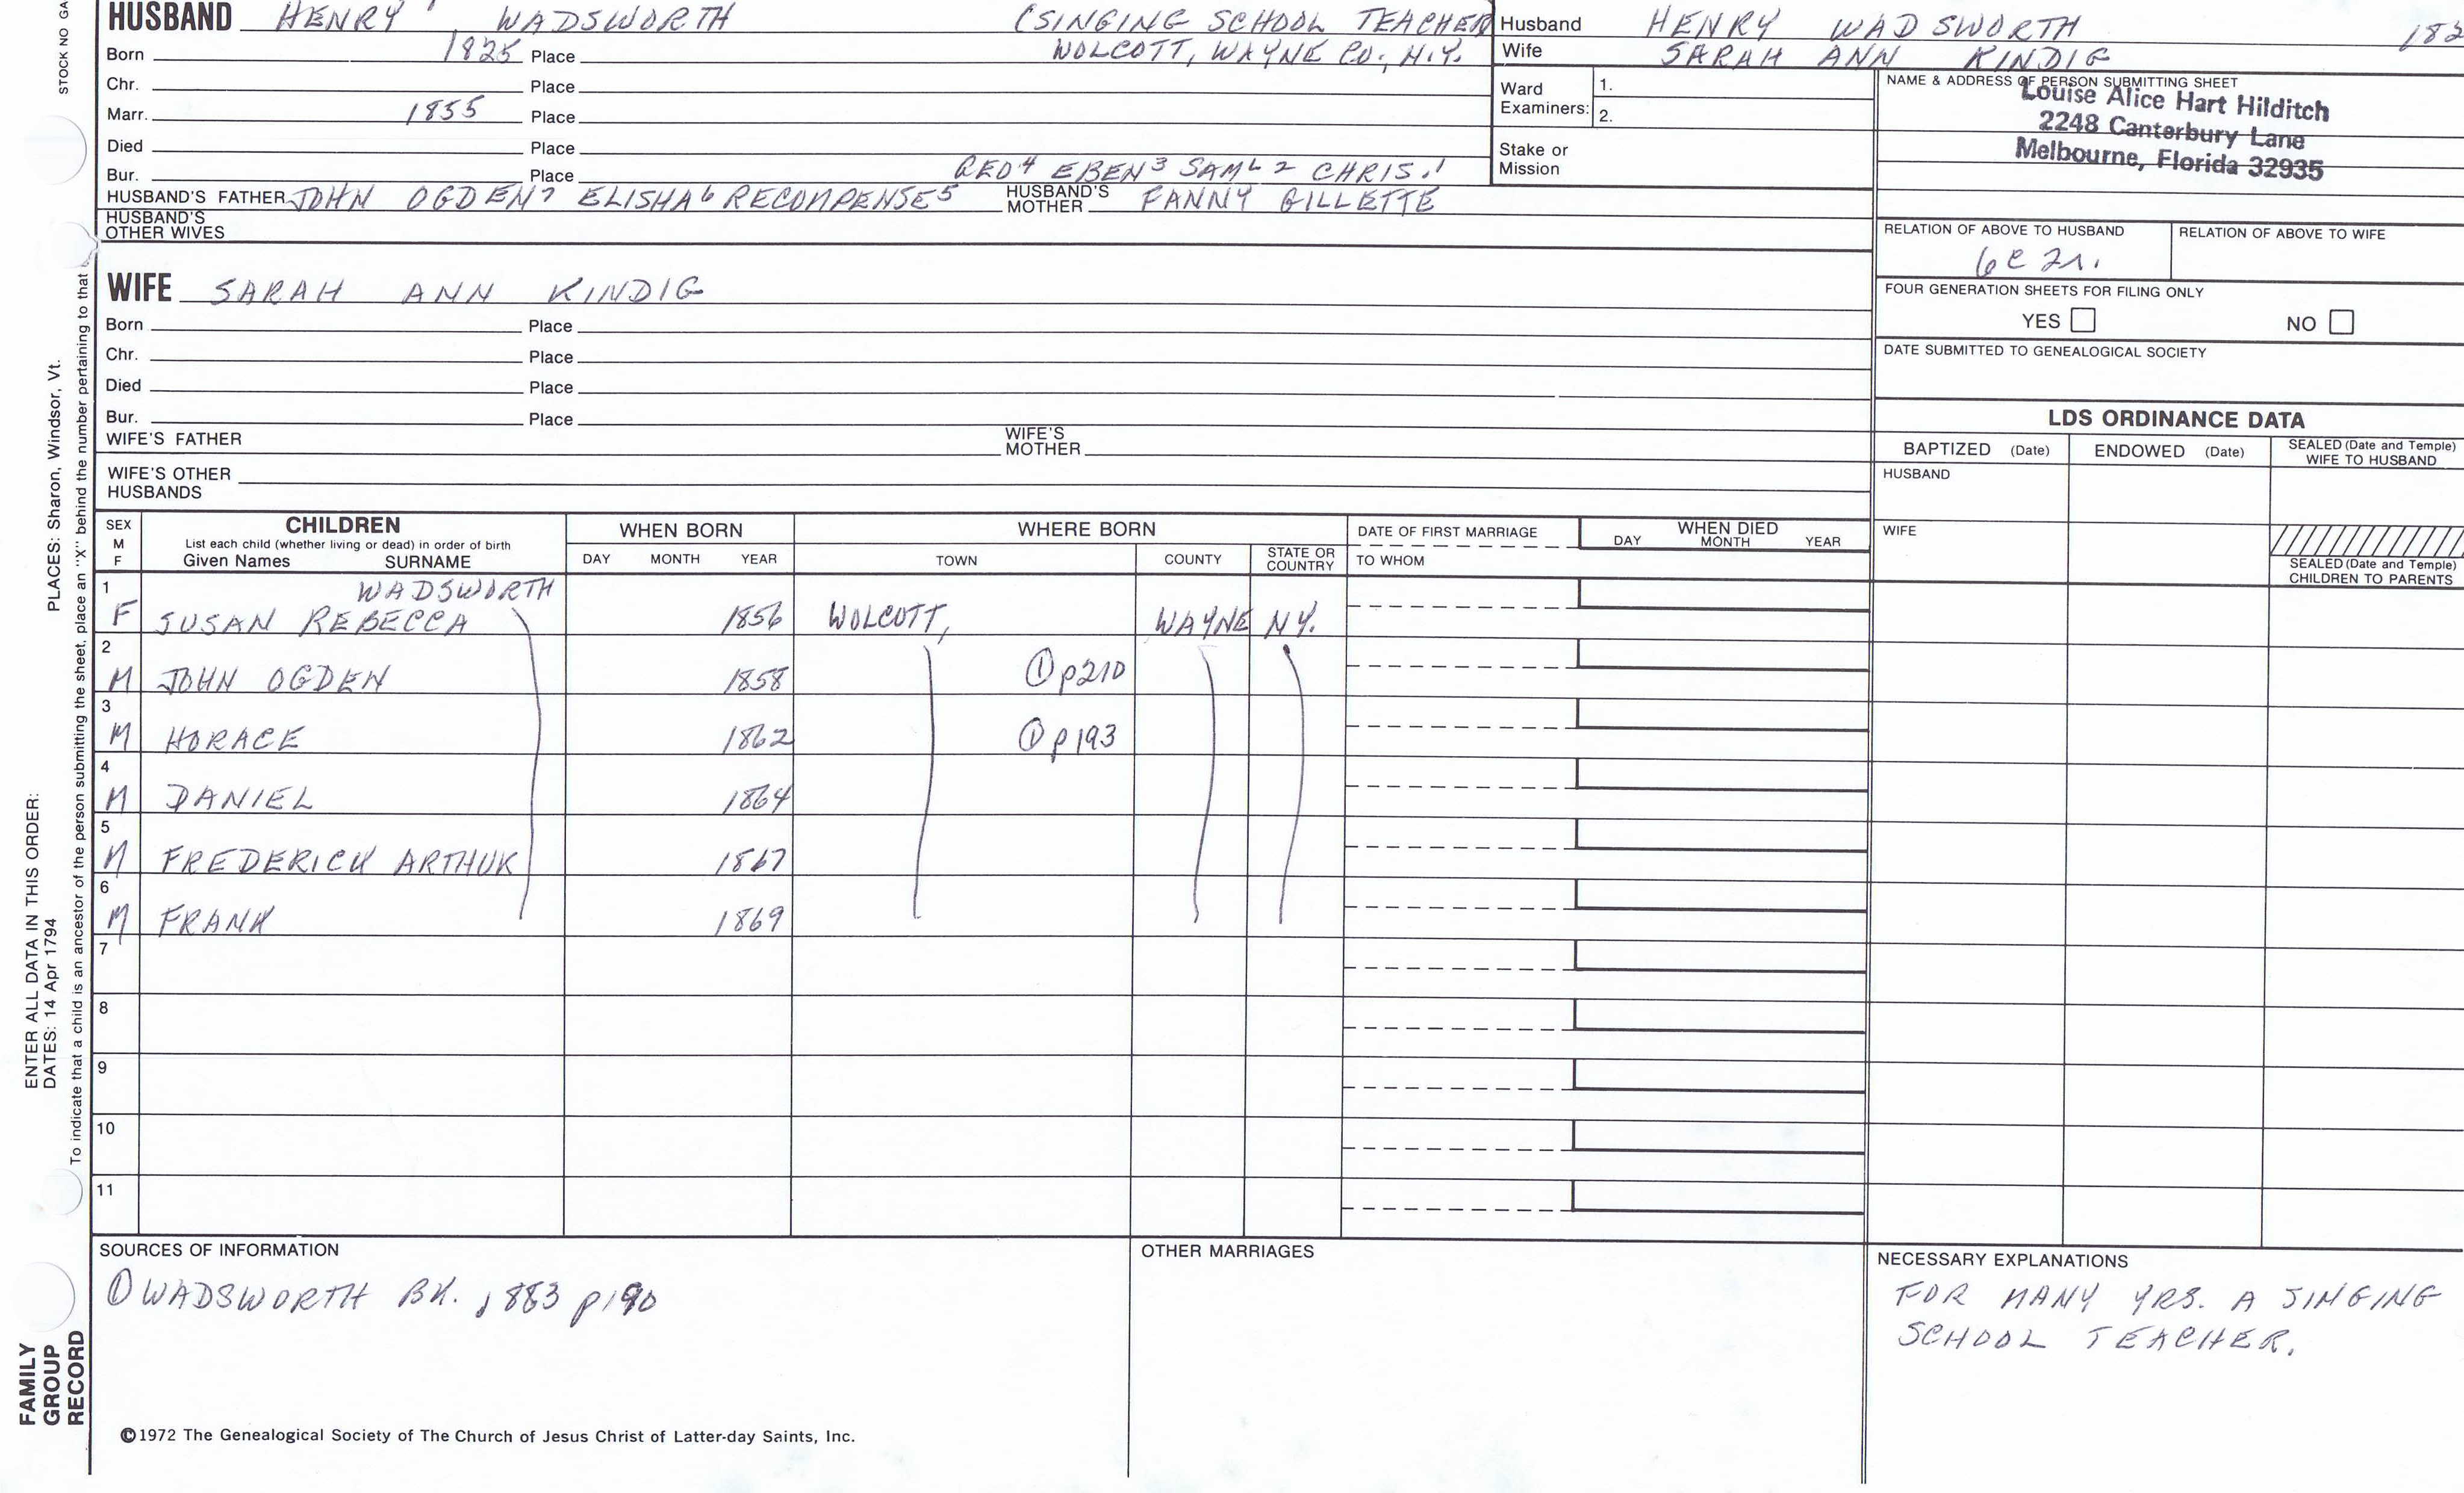 STOCK NO GA
HUSBAND HENRY WADSWORTH (SINGING SCHOOL TEACHER
Born 1825 Place WOLCOTT, WAYNE CO., N.Y.
Chr. Place
Marr. 1855 Place
Died Place
Bur. Place RED4 EBEN3 SAML2 CHRIS.1
HUSBAND'S FATHER JOHN OGDEN7 ELISHA6 RECOMPENSE5 HUSBAND'S MOTHER FANNY GILLETTE
HUSBAND'S
OTHER WIVES
Husband HENRY WADSWORTH 182
Wife SARAH ANN KINDIG
Ward
Examiners: 1.
2.
Stake or
Mission
NAME & ADDRESS OF PERSON SUBMITTING SHEET
Louise Alice Hart Hilditch
2248 Canterbury Lane
Melbourne, Florida 32935
RELATION OF ABOVE TO HUSBAND RELATION OF ABOVE TO WIFE
6C 2r.
FOUR GENERATION SHEETS FOR FILING ONLY
YES NO
DATE SUBMITTED TO GENEALOGICAL SOCIETY
WIFE SARAH ANN KINDIG
Born Place
Chr. Place
Died Place
Bur. Place
WIFE'S FATHER WIFE'S MOTHER
WIFE'S OTHER
HUSBANDS
LDS ORDINANCE DATA
BAPTIZED (Date) ENDOWED (Date) SEALED (Date and Temple)
WIFE TO HUSBAND
HUSBAND
WIFE
SEALED (Date and Temple)
CHILDREN TO PARENTS
SEX
M
F
CHILDREN
List each child (whether living or dead) in order of birth
Given Names SURNAME
WHEN BORN
DAY MONTH YEAR
WHERE BORN
TOWN COUNTY STATE OR
COUNTRY
DATE OF FIRST MARRIAGE
TO WHOM
WHEN DIED
DAY MONTH YEAR
1 WADSWORTH
F SUSAN REBECCA 1856 WOLCOTT, WAYNE NY.
2
M JOHN OGDEN 1858 ① p210
3
M HORACE 1862 ① p193
4
M DANIEL 1864
5
M FREDERICK ARTHUR 1867
6
M FRANK 1869
7
8
9
10
11
SOURCES OF INFORMATION
① WADSWORTH BK. 1883 p190
OTHER MARRIAGES
NECESSARY EXPLANATIONS
FOR MANY YRS. A SINGING
SCHOOL TEACHER.
©1972 The Genealogical Society of The Church of Jesus Christ of Latter-day Saints, Inc.
FAMILY
GROUP
RECORD
ENTER ALL DATA IN THIS ORDER:
DATES: 14 Apr 1794
PLACES: Sharon, Windsor, Vt.
To indicate that a child is an ancestor of the person submitting the sheet, place an "X" behind the number pertaining to that